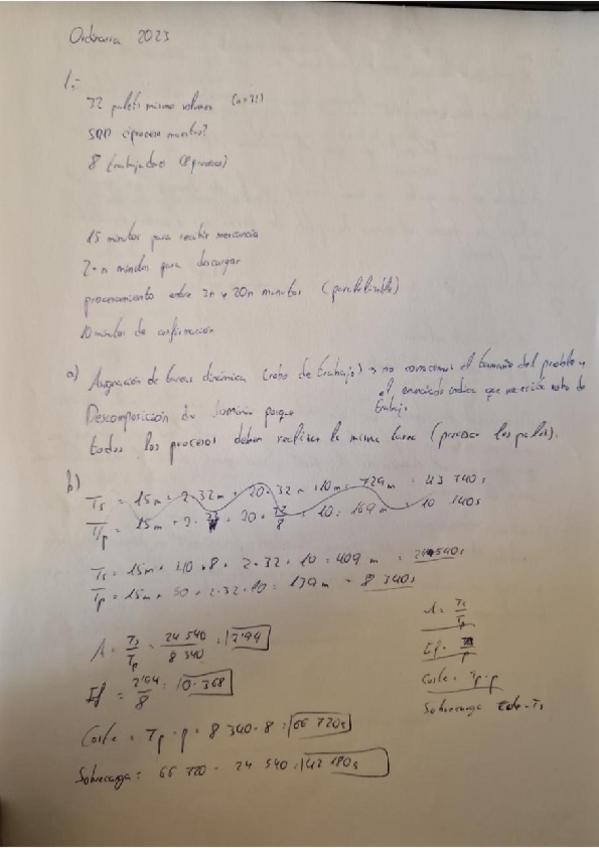 Ordinaria 2023
1.-
32 palets mismo volumen (n=32)
SPMD ¿proceso maestro?
8 trabajadores (8 procesos)
15 minutos para recibir mercancía
2·n minutos para descargar
procesamiento entre 2n y 20n minutos (paralelizable)
10 minutos de confirmación
a) Asignación de tareas dinámica (robo de trabajo) no conocemos el tamaño del problema y
el enunciado indica que necesita robo de
trabajo
Descomposición de dominio porque
todos los procesos deben realizar la misma tarea (procesar los palets).
b)
Ts = 15m + 2·32m + 20·32m + 10m = 729m = 43 740s
Tp = 15m + 2· + 20·32/8 + 10 = 169m = 10 140s
Ts = 15m + 40·8 + 2·32 + 10 = 409m = 24 540s
Tp = 15m + 50 + 2·32 + 10 = 139m = 8 340s
A = Ts/Tp = 24 540/8 340 = 2'94
A = Ts/Tp
Ef = 2'94/8 = 0.368
Ef =
Coste = Tp·p = 8 340·8 = 66 720s
Coste = Tp·p
Sobrecarga = 66 720 - 24 540 = 42 180s
Sobrecarga - Ts